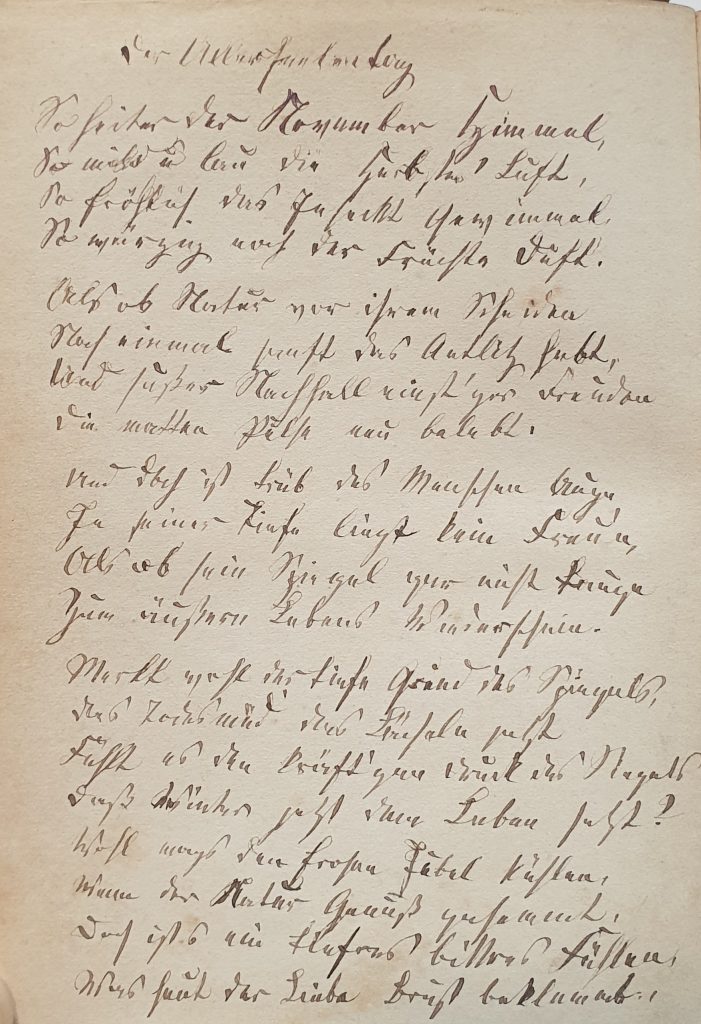 Der Allerseelentag
So heiter der November Himmel,
So mild u lau die Herbstes Luft,
So fröhlich das Inseckt Gewimmel,
So würzig noch der Früchte Duft.
Als ob Natur vor ihrem Scheiden
Noch einmal sanft das Antlitz hebt,
Und süßer Nachhall einst'ger Freuden
Die matten Pulse neu belebt.
Und doch ist trüb des Menschen Auge,
In seiner Tiefe liegt kein Freun,
Als ob sein Spiegel gar nicht tauge
Zum äußern Lebens Wiederschein.
Merkt wohl der tiefe Grund des Spiegels,
das Todesmüd' das Lächeln jetzt
Fühlt es den kräft'gen Druck des Siegels
Daß Winter jetzt dem Leben setzt?
Wohl mags den frohen Jubel kühlen,
Wenn der Natur Genuß gehemmt,
Doch ist's ein tiefres bittres Fühlen,
Was heut der Liebe Brust beklemmt.